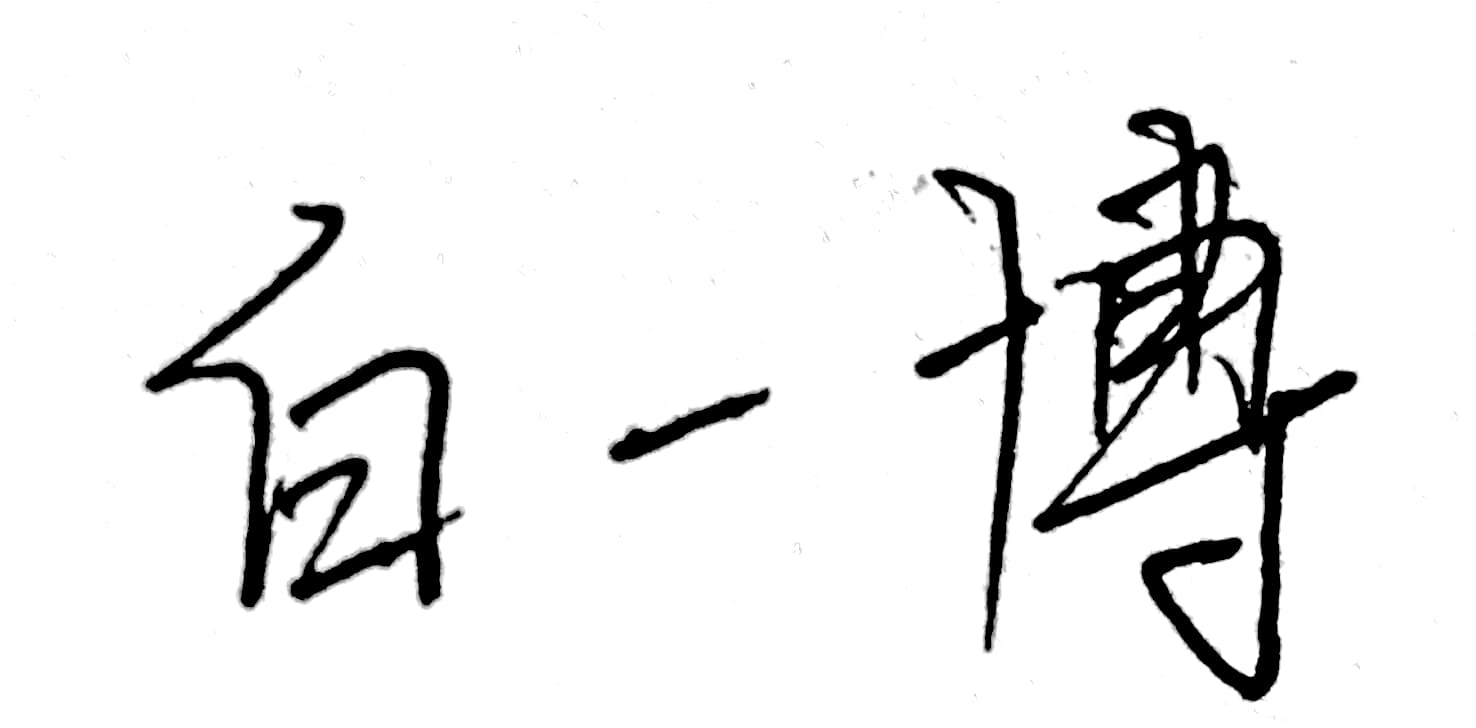 白一博